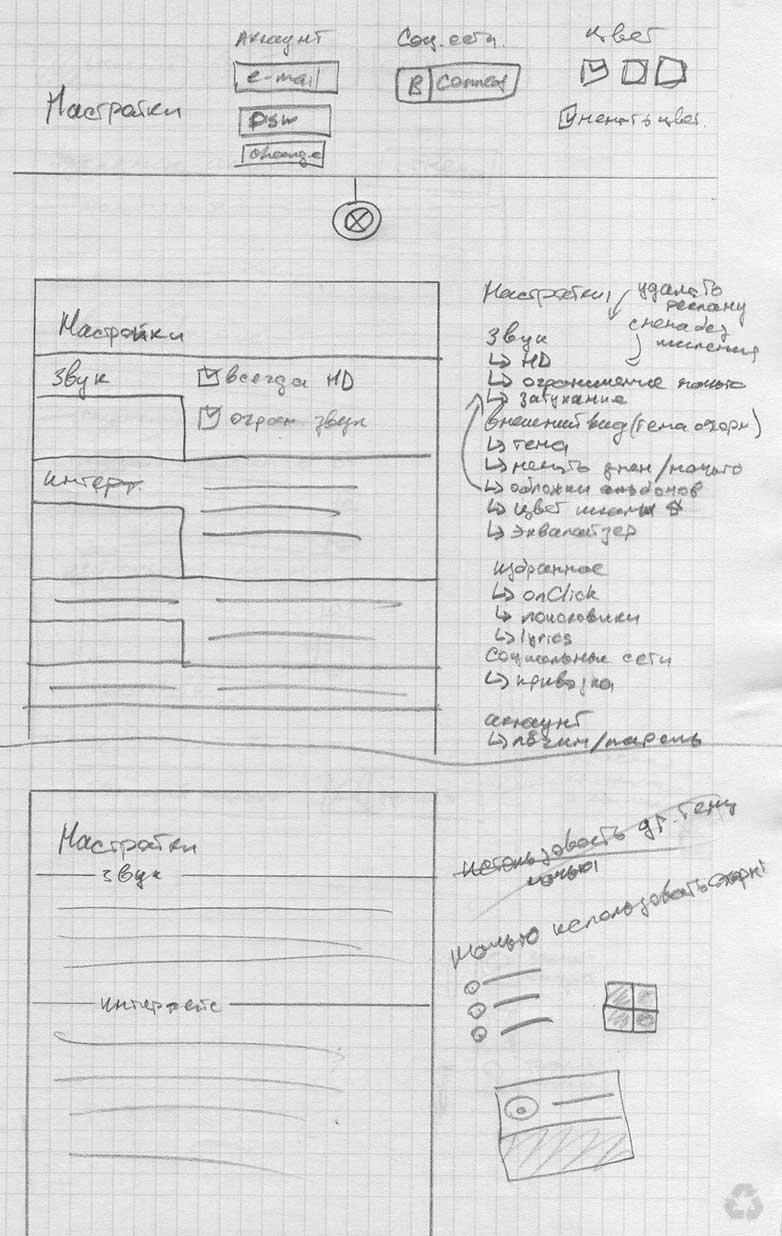 Аккаунт
Соц. сети.
Цвет
e-mail
В Connect
Настройки
psw
менять цвет.
change
Настройки
Звук
всегда HD
огран звук
интерф.
Настройки,
удалять
рекламу
Звук
смена без
↳ HD
↳ ограничение ночью
↳ затухание
внешний вид (тема оформ)
↳ тема
↳ менять днем/ночью
↳ обложки альбомов
↳ цвет шкалы
↳ эквалайзер
избранное
↳ onClick
↳ поисковики
↳ lyrics
Социальные сети
↳ привязка
аккаунт
↳ логин/пароль
Настройки
Звук
использовать др. тему
ночью
Ночью использовать
интерфейс